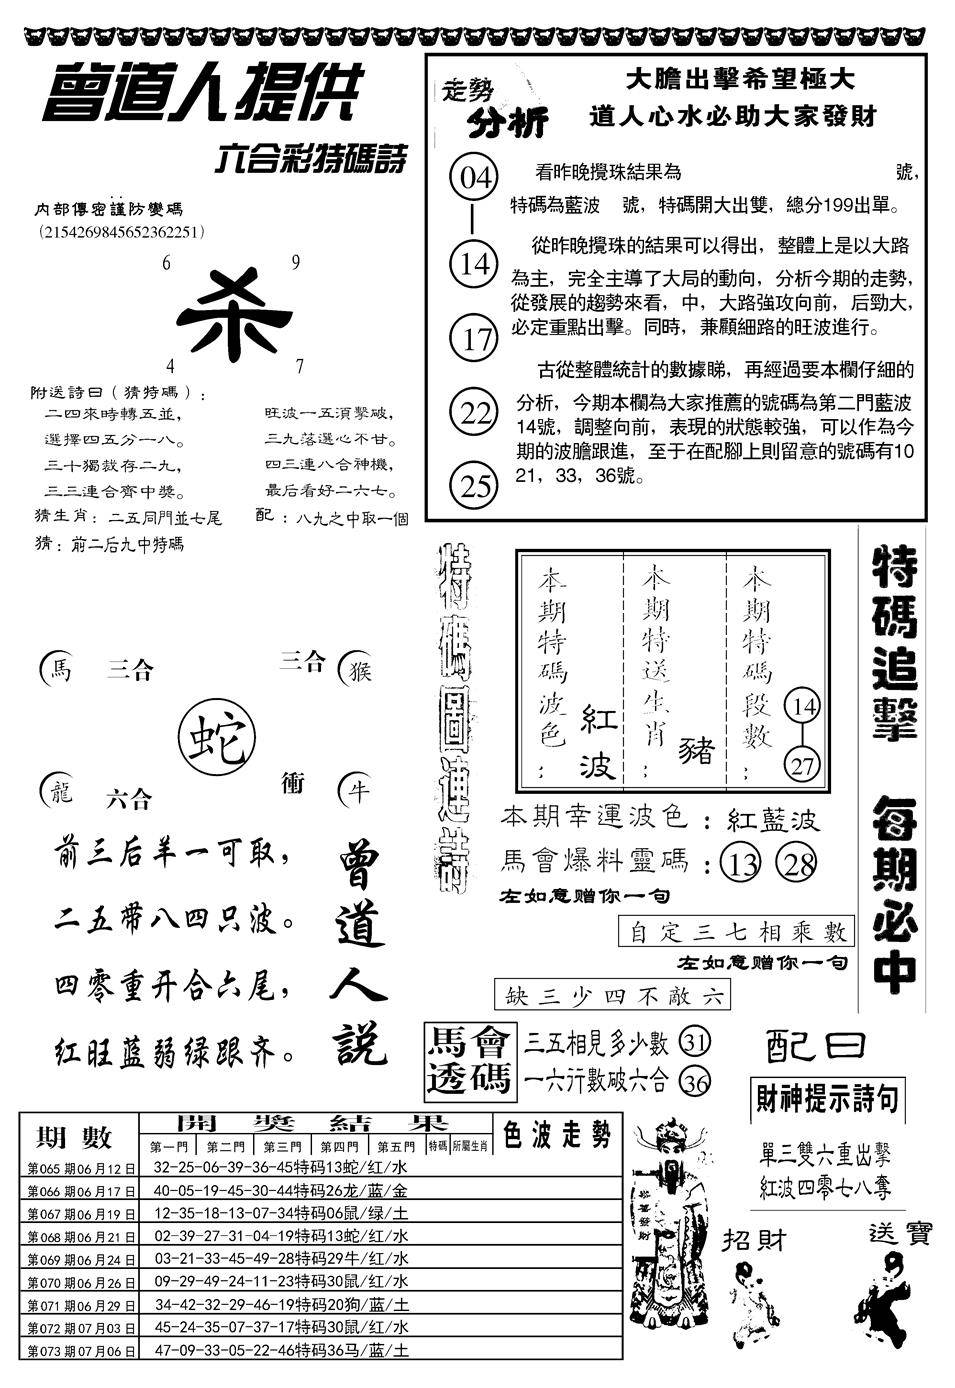 曾道人提供
六合彩特碼詩
内部傳密謹防變碼
（2154269845652362251）
6 9
杀
4 7
附送詩曰（猜特碼）：
二四來時轉五並， 旺波一五須擊破，
選擇四五分一八。 三九落選心不甘。
三十獨裁存二九， 四三連八合神機，
三三連合齊中獎。 最后看好二六七。
猜生肖：二五同門並七尾 配：八九之中取一個
猜：前二后九中特碼
走勢
分析
大膽出擊希望極大
道人心水必助大家發財
04
14
17
22
25
看昨晚攪珠結果為 號，
特碼為藍波 號，特碼開大出雙，總分199出單。
從昨晚攪珠的結果可以得出，整體上是以大路
為主，完全主導了大局的動向，分析今期的走勢，
從發展的趨勢來看，中，大路強攻向前，后勁大，
必定重點出擊。同時，兼顧細路的旺波進行。
古從整體統計的數據睇，再經過要本欄仔細的
分析，今期本欄為大家推薦的號碼為第二門藍波
14號，調整向前，表現的狀態較強，可以作為今
期的波膽跟進，至于在配腳上則留意的號碼有10
21，33，36號。
馬 三合 三合 猴
蛇
龍 六合 衝 牛
前三后羊一可取，
二五带八四只波。
四零重开合六尾，
红旺蓝弱绿跟齐。
曾道人説
特碼圖連詩
本期特碼波色：紅波
本期特送生肖：豬
本期特碼段數：14 27
本期幸運波色：紅藍波
馬會爆料靈碼：13 28
左如意赠你一句
自定三七相乘數
左如意赠你一句
缺三少四不敵六
特碼追擊 每期必中
馬會透碼
三五相見多少數 31
一六行數破六合 36
配曰
財神提示詩句
單三雙六重出擊
紅波四零七八奪
恭喜發財
招財
送寶
期數 開獎結果 色波走勢
第一門 第二門 第三門 第四門 第五門 特碼 所屬生肖
第065期06月12日 32-25-06-39-36-45特码13蛇/红/水
第066期06月17日 40-05-19-45-30-44特码26龙/蓝/金
第067期06月19日 12-35-18-13-07-34特码06鼠/绿/土
第068期06月21日 02-39-27-31-04-19特码13蛇/红/水
第069期06月24日 03-21-33-45-49-28特码29牛/红/水
第070期06月26日 09-29-49-24-11-23特码30鼠/红/水
第071期06月29日 34-42-32-29-46-19特码20狗/蓝/土
第072期07月03日 45-24-35-07-37-17特码30鼠/红/水
第073期07月06日 47-09-33-05-22-46特码36马/蓝/土